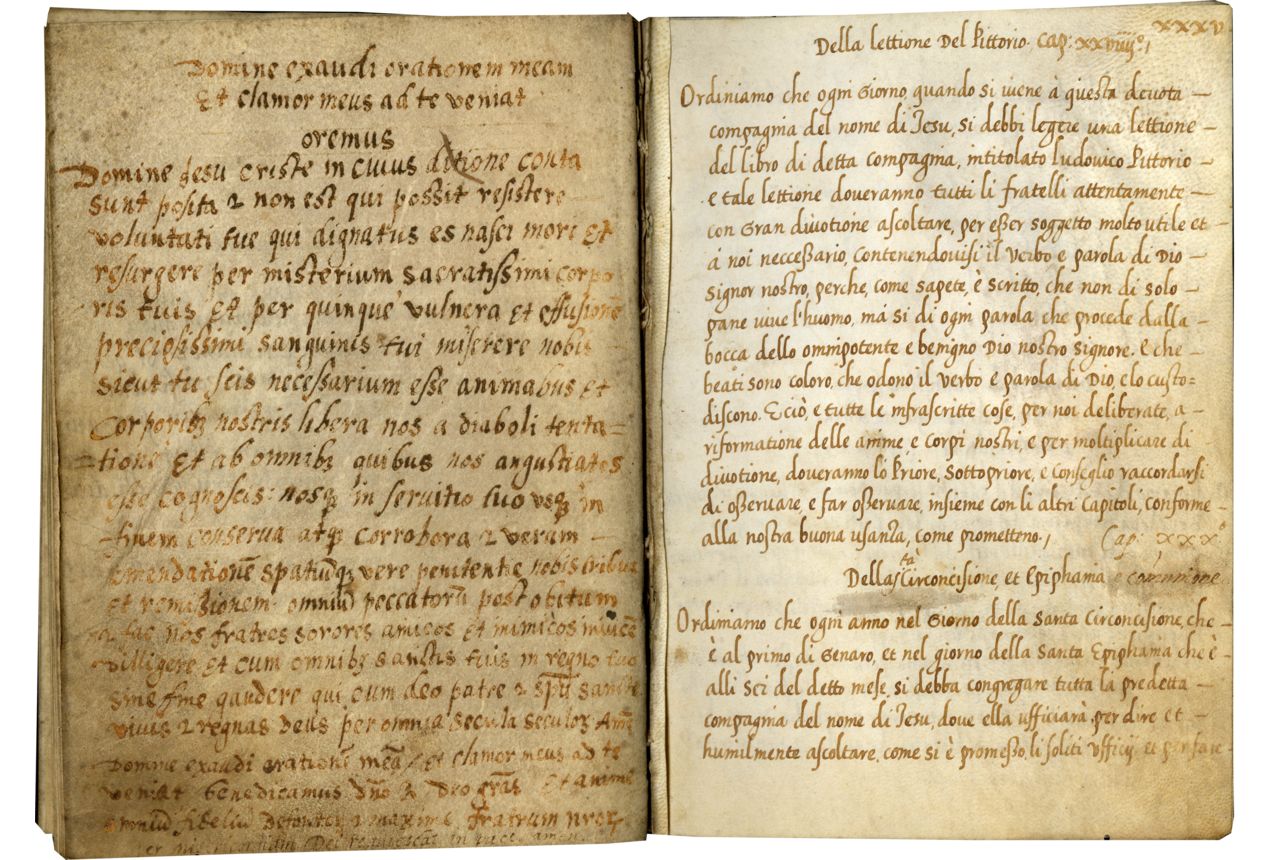 Domine exaudi orationem meam
Et clamor meus ad te veniat
oremus
Domine Jesu criste in cuius ditione conta
sunt posita & non est qui possit resistere
voluntati tue qui dignatus es nasci mori Et
resurgere per misterium sacratissimi corpo
ris tuis Et per quinque vulnera Et effusionē
preciosissimi sanguinis tui miserere nobis
sicut tu scis necessarium esse animabus Et
corporibꝫ nostris libera nos a diaboli tenta=
tione Et ab omnibꝫ quibus nos angustiatos
esse cognoscis: nosqꝫ in servitio tuo usqꝫ in
finem conserva atqꝫ corrobora & veram
emendationē spatiudqꝫ vere penitentie nobis tribue
Et remissionem omniū peccatorū post obitum
fac nos fratres sorores amicos Et inimicos invicē
diligere Et cum omnibꝫ sanctis tuis in regno tuo
sine fine gaudere qui cum deo patre & spū sancto
vivis & regnas Deus per omnia secula seculoꝝ Amē
Domine exaudi orationē meā Et clamor meus ad te
veniat benedicamus dño ꝶ Deo grās Et anime
omniū fideliū defunctoꝝ & maxime fratrum nroꝝ
per misericordiam Dei requiescāt in pace amen
xxxv
Della lettione Del Pittorio. Cap: xxviiij.º/
Ordiniamo che ogni Giorno, quando si viene à questa devota —
compagnia del nome di Jesu, si debbi legere una lettione —
del libro di detta compagnia, intitolato Ludovico Pittorio —
e tale lettione doveranno tutti li fratelli attentamente —
con Gran divotione ascoltare, per esser soggetto molto utile et
à noi neccessario, Contenendovisi il Verbo e parola di Dio —
Signor nostro, perche, come sapete, è scritto, che non di solo —
pane vive l'huomo, mà si di ogni parola che procede dalla —
bocca dello omnipotente e benigno Dio nostro Signore. E che —
beati sono coloro, che odono il verbo e parola di Dio, e lo custo=
discono. E ciò, e tutte le infrascritte cose, per noi deliberate, a —
riformatione delle anime, e corpi nostri, e per moltiplicare di
divotione, doveranno li Priore, Sottopriore, e Conseglio raccordarsi
di osservare, e far osservare, insieme con li altri Capitoli, conforme —
alla nostra buona usanza, come prometteno./ Cap: xxx.º
Della Stà Circoncisione, et Epiphania e comunione
Ordiniamo che ogni anno nel Giorno della Santa Circoncisione, che —
è al primo di Genaro, et nel giorno della Santa Epiphania che è —
alli Sei del detto mese, si debba congregare tutta la predetta —
compagnia del nome di Jesu, dove ella ufficiarà, per dire et —
humilmente ascoltare, come si è promesso, li soliti Ufficij, et per fare —